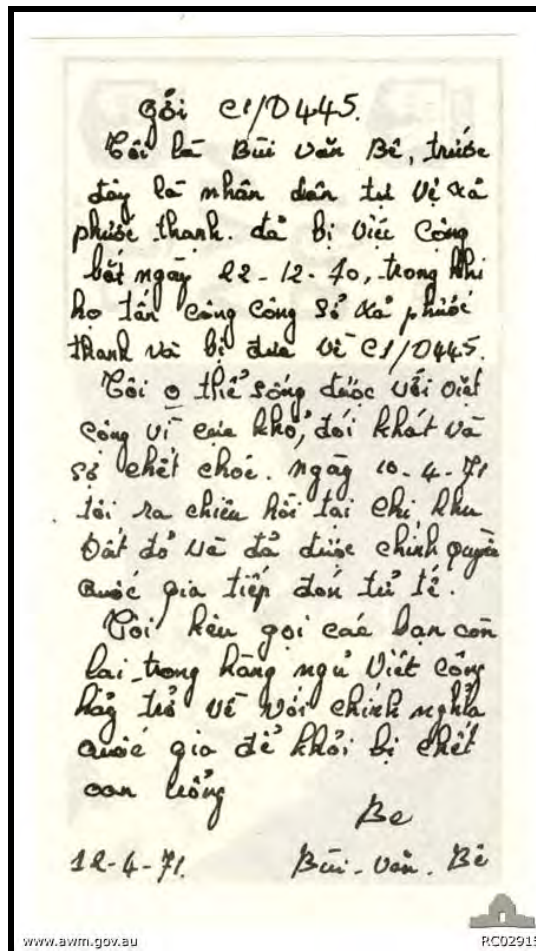 gởi C1/D445.
Tôi là Bùi văn Bê, trước
đây là nhân dân tự vệ xả
phước thạnh. đả bị việt cộng
bắt ngày 22-12-70, trong khi
họ tấn công công sở xả phước
thạnh và bị đưa về C1/D445.
Tôi o thể sống được với việt
cộng vì cực khổ, đói khát và
sợ chết chóc. ngày 10-4-71
tôi ra chiêu hồi tại chi khu
Đất đỏ và đả được chính quyền
quốc gia tiếp đón tử tế.
Tôi kêu gọi các bạn còn
lại trong hàng ngủ việt cộng
hảy trở về với chính nghỉa
quốc gia để khỏi bị chết
oan uổng
Be
12-4-71. Bùi-văn-Bê
www.awm.gov.au